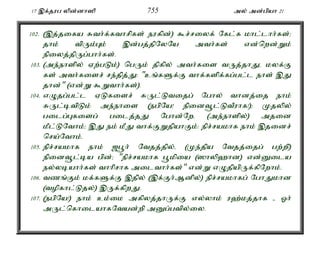 17 இக்தரப லின்னாஸி 755 அல் அன்பியா 21
102. (இத்தகைய சுவர்க்கவாசிகள் நரகின்) கூச்சலைக் கேட்க மாட்டார்கள்;
தாம் விரும்பும் இன்பத்திலேயே அவர்கள் என்றென்றும்
நிலைத்திருப்பார்கள்.
103. (அந்நாளில் ஏற்படும்) பெரும் திகில் அவர்களை வருத்தாது. மலக்கு
கள் அவர்களைச் சந்தித்து: "உங்களுக்கு வாக்களிக்கப்பட்ட நாள் இது
தான்" (என்று கூறுவார்கள்)
104. எழுதப்பட்ட ஏடுகளைச் சுருட்டுவதைப் போல் வானத்தை நாம்
சுருட்டிவிடும் அந்நாளை (நபியே! நினைவூட்டுவீராக!); முதலில்
படைப்புகளைப் படைத்தது போன்றே, (அந்நாளில்) அதனை
மீட்டுவோம்; இது நம் மீது வாக்குறுதியாகும்; நிச்சயமாக நாம் இதனைச்
செய்வோம்.
105. நிச்சயமாக நாம் ஜபூர் வேதத்தில், (முந்திய வேதத்தைப் பற்றி)
நினைவூட்டிய பின்; "நிச்சயமாக பூமியை (ஸாலிஹான) என்னுடைய
நல்லடியார்கள் வாரிசாக அடைவார்கள்" என்று எழுதியிருக்கிறோம்.
106. வணங்கும் மக்களுக்கு இதில் (இக்குர்ஆனில்) நிச்சயமாகப் போதுமான
(வழிகாட்டுதல்) இருக்கிறது.
107. (நபியே) நாம் உம்மை அகிலத்தாருக்கு எல்லாம் ரஹ்மத்தாக - ஓர்
அருட் கொடையாகவேயன்றி அனுப்பவில்லை.